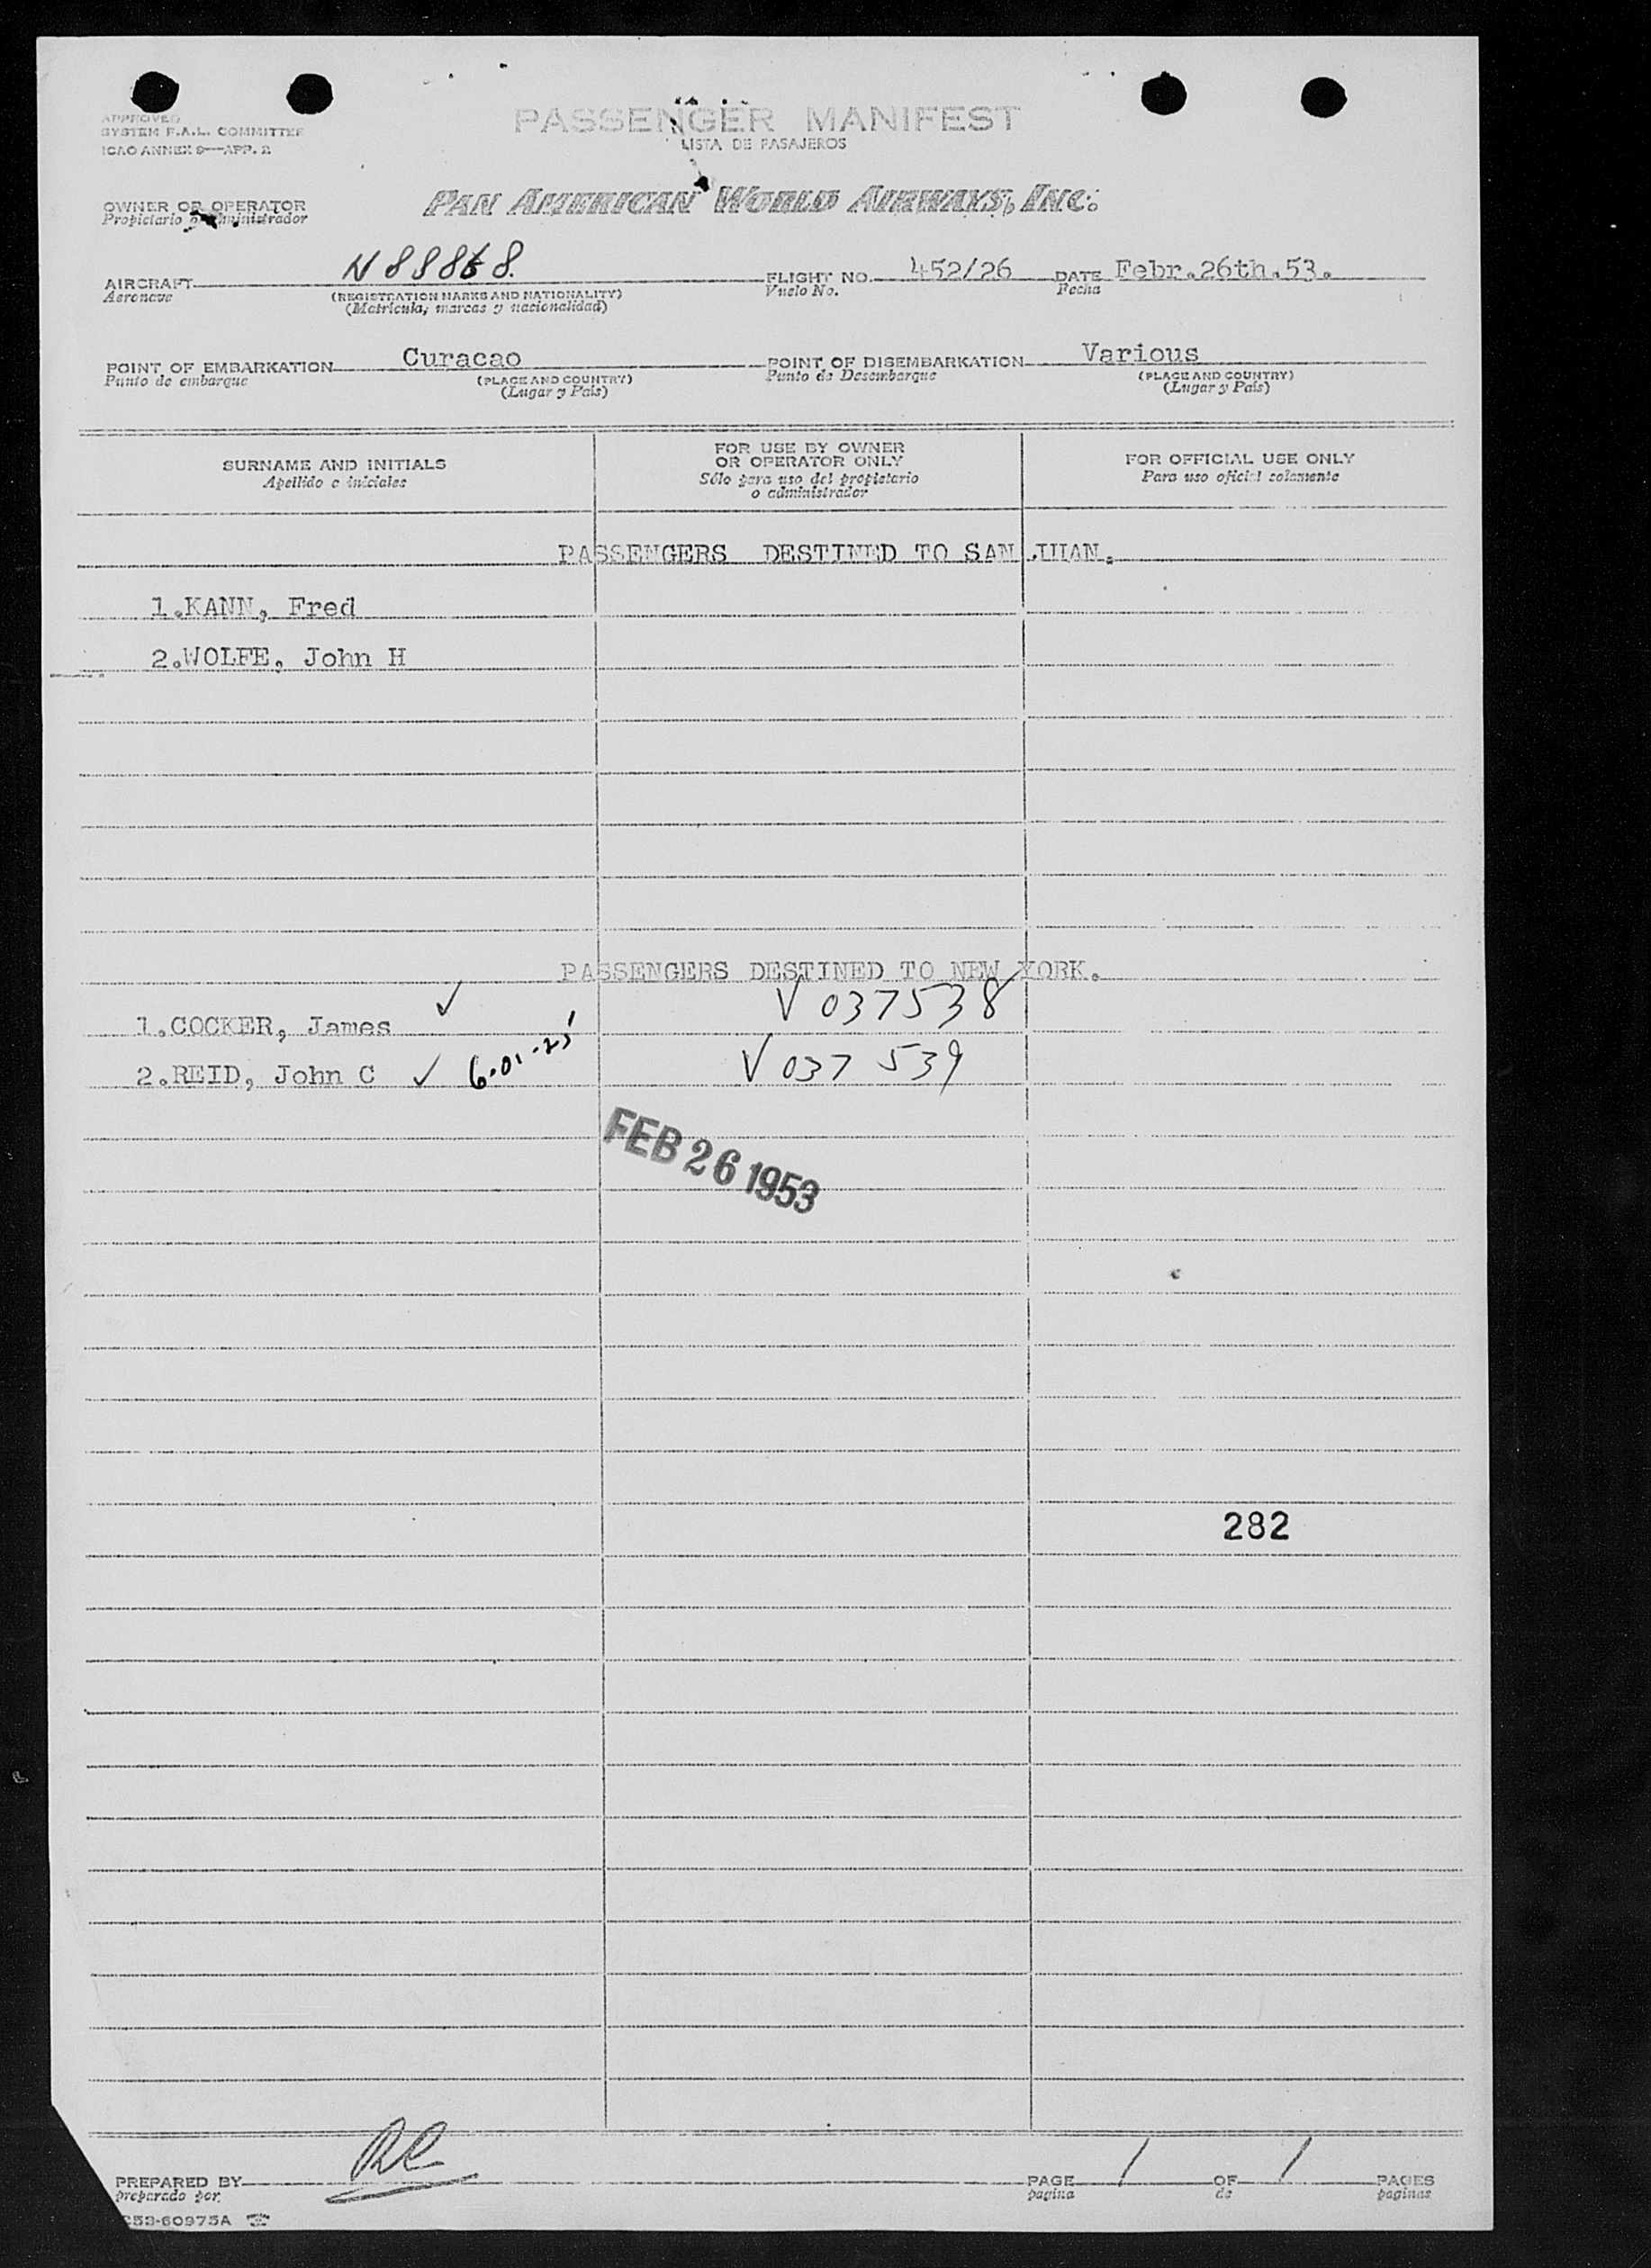 APPROVED
SYSTEM F.A.L. COMMITTEE
ICAO ANNEX 9—APP. 2
PASSENGER MANIFEST
LISTA DE PASAJEROS
OWNER OR OPERATOR
Propietario o administrador
PAN AMERICAN WORLD AIRWAYS, INC.
AIRCRAFT
Aeronave
(REGISTRATION MARKS AND NATIONALITY)
(Matrícula, marcas y nacionalidad)
FLIGHT NO. 452/26
Vuelo No.
DATE Febr.26th.53.
Fecha
POINT OF EMBARKATION Curacao
Punto de embarque
(PLACE AND COUNTRY)
(Lugar y País)
POINT OF DISEMBARKATION Various
Punto de Desembarque
(PLACE AND COUNTRY)
(Lugar y País)
SURNAME AND INITIALS
Apellido e iniciales
FOR USE BY OWNER
OR OPERATOR ONLY
Sólo para uso del propietario
o administrador
FOR OFFICIAL USE ONLY
Para uso oficial solamente
PASSENGERS DESTINED TO SAN JUAN.
1.KANN, Fred
2.WOLFE, John H
PASSENGERS DESTINED TO NEW YORK.
1.COCKER, James ✓ V 037538
2.REID, John C ✓ V 037 539
FEB 26 1953
282
PREPARED BY
preparado por
PAGE 1 OF 1 PAGES
pagina de paginas
C53-60975A